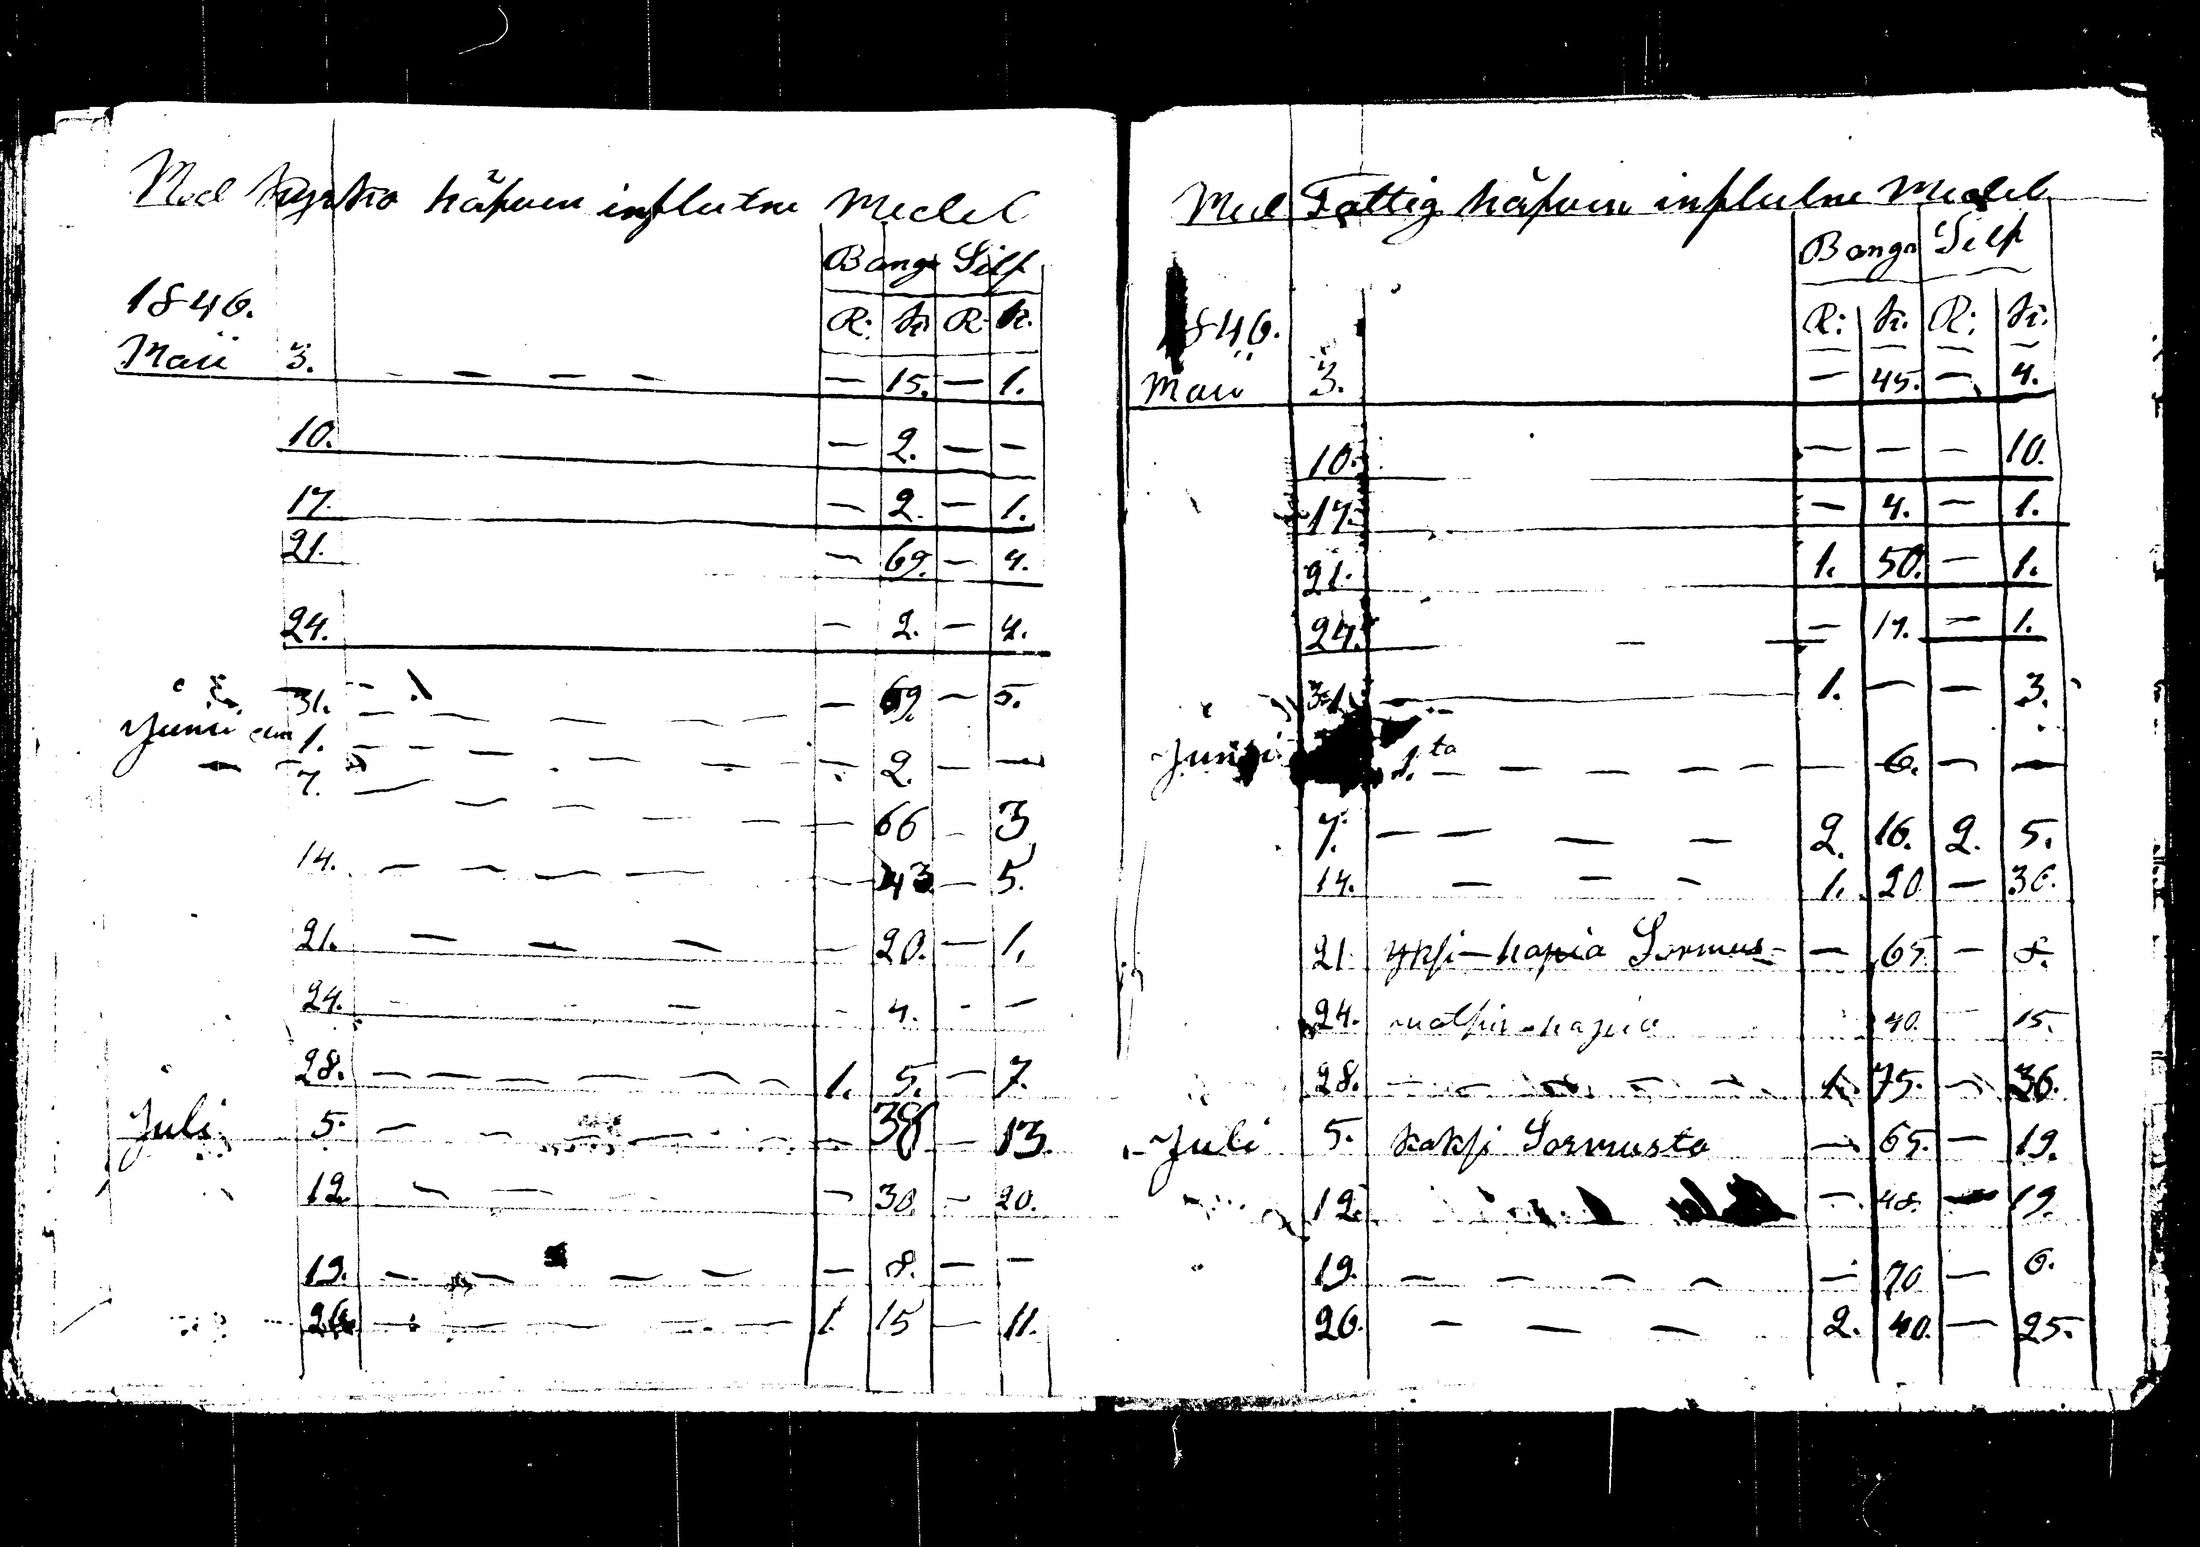 Med Kyrko håfven influtne Medel
Banco Silf
1846. R: K. R. K.
Maii 3. — — — — — 15. — 1.
10. — 2. — —
17. — 2. — 1.
21. — 69. — 4.
24. — 2. — 4.
31. — 69. — 5.
Junii den 1. — — — — — 2. — —
7. — — — — — 66 — 3
14. — — — — — 43 — 5.
21. — — — — 20. — 1.
24. — — — 4. — —
28. — — — — — — 1. 5. — 7.
Juli 5. — — — — — 38 — 13.
12. — — — 30. — 20.
19. — — — — — 8. — —
26. — — — — — 1. 15 — 11.
Med Fattig håfven influtne Medel
Bango Silf
1846. R: K. R: K.
Maii 3. — 45. — 4.
10. — — — 10.
17. — 4. — 1.
21. 1. 50. — 1.
24. — 17. — 1.
31. 1. — — 3.
Junii 1.ta — — — — — — 6. — —
7. — — — — 2. 16. 2. 5.
14. — — — 1. 20 — 36.
21. yksi hapia Sormus — 65 — 8.
24. hapia 40. — 15.
28. — — — — — 1. 75. — 36.
Juli 5. kaksi Sormusta — 65. — 19.
12. — 48. — 19.
19. — — — — — 70 — 6.
26. — — — 2. 40. — 25.